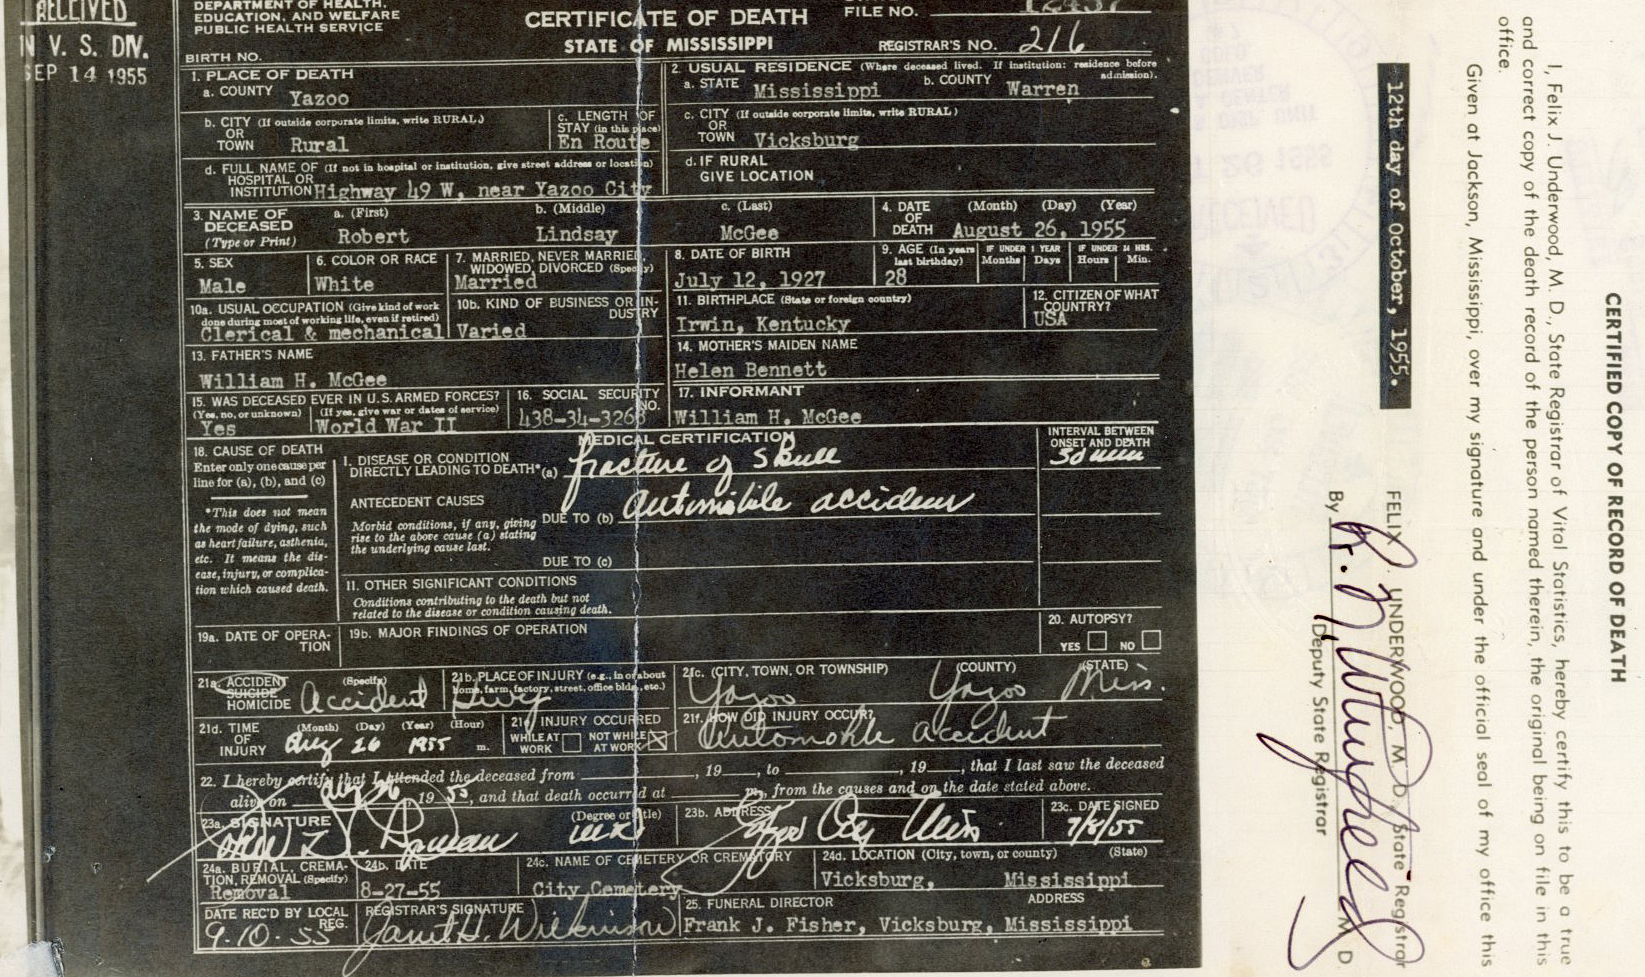 RECEIVED
IN V. S. DIV.
SEP 14 1955
DEPARTMENT OF HEALTH,
EDUCATION, AND WELFARE
PUBLIC HEALTH SERVICE
CERTIFICATE OF DEATH
STATE OF MISSISSIPPI
FILE NO.
REGISTRAR'S NO. 216
BIRTH NO.
1. PLACE OF DEATH
a. COUNTY Yazoo
b. CITY (If outside corporate limits, write RURAL)
OR
TOWN Rural
c. LENGTH OF
STAY (in this place)
En Route
d. FULL NAME OF (If not in hospital or institution, give street address or location)
HOSPITAL OR
INSTITUTION Highway 49 W, near Yazoo City
2. USUAL RESIDENCE (Where deceased lived. If institution: residence before
admission).
a. STATE Mississippi b. COUNTY Warren
c. CITY (If outside corporate limits, write RURAL)
OR
TOWN Vicksburg
d. IF RURAL
GIVE LOCATION
3. NAME OF
DECEASED
(Type or Print)
a. (First) b. (Middle) c. (Last)
Robert Lindsay McGee
4. DATE
OF
DEATH
(Month) (Day) (Year)
August 26, 1955
5. SEX
Male
6. COLOR OR RACE
White
7. MARRIED, NEVER MARRIED,
WIDOWED, DIVORCED (Specify)
Married
8. DATE OF BIRTH
July 12, 1927
9. AGE (In years
last birthday)
28
IF UNDER 1 YEAR
Months Days
IF UNDER 24 HRS.
Hours Min.
10a. USUAL OCCUPATION (Give kind of work
done during most of working life, even if retired)
Clerical & mechanical
10b. KIND OF BUSINESS OR IN-
DUSTRY
Varied
11. BIRTHPLACE (State or foreign country)
Irwin, Kentucky
12. CITIZEN OF WHAT
COUNTRY?
USA
13. FATHER'S NAME
William H. McGee
14. MOTHER'S MAIDEN NAME
Helen Bennett
15. WAS DECEASED EVER IN U.S. ARMED FORCES?
(Yes, no, or unknown) (If yes, give war or dates of service)
Yes World War II
16. SOCIAL SECURITY
NO.
438-34-3268
17. INFORMANT
William H. McGee
18. CAUSE OF DEATH
Enter only one cause per
line for (a), (b), and (c)
*This does not mean
the mode of dying, such
as heart failure, asthenia,
etc. It means the dis-
ease, injury, or complica-
tion which caused death.
MEDICAL CERTIFICATION
INTERVAL BETWEEN
ONSET AND DEATH
30 min
I. DISEASE OR CONDITION
DIRECTLY LEADING TO DEATH* (a) fracture of Skull
ANTECEDENT CAUSES
Morbid conditions, if any, giving
rise to the above cause (a) stating
the underlying cause last.
DUE TO (b) automobile accident
DUE TO (c)
11. OTHER SIGNIFICANT CONDITIONS
Conditions contributing to the death but not
related to the disease or condition causing death.
19a. DATE OF OPERA-
TION
19b. MAJOR FINDINGS OF OPERATION
20. AUTOPSY?
YES NO
21a. ACCIDENT
SUICIDE
HOMICIDE
(Specify)
Accident
21b. PLACE OF INJURY (e.g., in or about
home, farm, factory, street, office bldg., etc.)
Hwy
21c. (CITY, TOWN, OR TOWNSHIP) (COUNTY) (STATE)
Yazoo Yazoo Miss.
21d. TIME
OF
INJURY
(Month) (Day) (Year) (Hour)
Aug 26 1955 m.
21e. INJURY OCCURRED
WHILE AT
WORK
NOT WHILE
AT WORK
21f. HOW DID INJURY OCCUR?
Automobile accident
22. I hereby certify that I attended the deceased from , 19 , to , 19 , that I last saw the deceased
alive on Aug 26 19 55, and that death occurred at m., from the causes and on the date stated above.
23a. SIGNATURE
(Degree or title)
23b. ADDRESS
Yazoo City Miss
23c. DATE SIGNED
24a. BURIAL, CREMA-
TION, REMOVAL (Specify)
Removal
24b. DATE
8-27-55
24c. NAME OF CEMETERY OR CREMATORY
City Cemetery
24d. LOCATION (City, town, or county) (State)
Vicksburg, Mississippi
DATE REC'D BY LOCAL
REG.
9-10-55
REGISTRAR'S SIGNATURE
Janet H. Wilkinson
25. FUNERAL DIRECTOR ADDRESS
Frank J. Fisher, Vicksburg, Mississippi
CERTIFIED COPY OF RECORD OF DEATH
I, Felix J. Underwood, M. D., State Registrar of Vital Statistics, hereby certify this to be a true
and correct copy of the death record of the person named therein, the original being on file in this
office.
Given at Jackson, Mississippi, over my signature and under the official seal of my office this
12th day of October, 1955.
FELIX J. UNDERWOOD, M. D., State Registrar
By M D
Deputy State Registrar